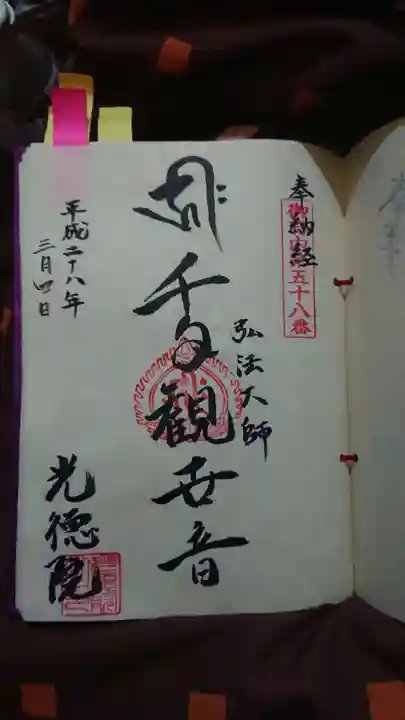 奉納経
御府内五十八番
弘法大師
千手観世音
平成二十八年
三月四日
光徳院